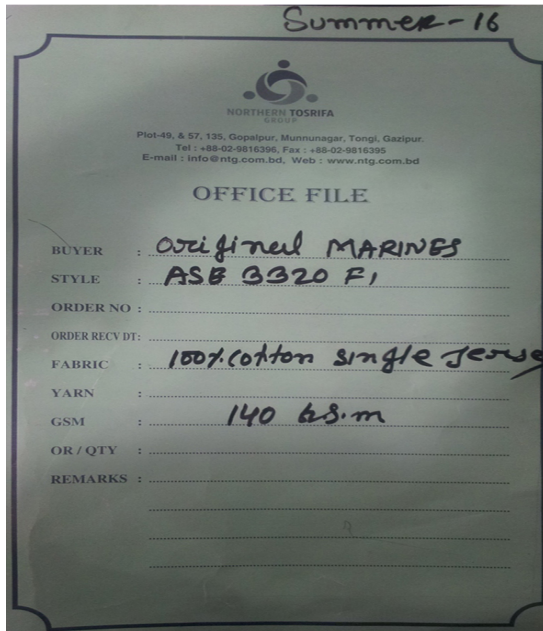 Summer-16
NORTHERN TOSRIFA
GROUP
Plot-49, & 57, 135, Gopalpur, Munnunagar, Tongi, Gazipur.
Tel : +88-02-9816396, Fax : +88-02-9816395
E-mail : info@ntg.com.bd, Web : www.ntg.com.bd
OFFICE FILE
BUYER : Original MARINES
STYLE : ASB 3320 F1
ORDER NO :
ORDER RECV DT:
FABRIC : 100% cotton single Jerse
YARN :
GSM : 140 G.S.m
OR / QTY :
REMARKS :